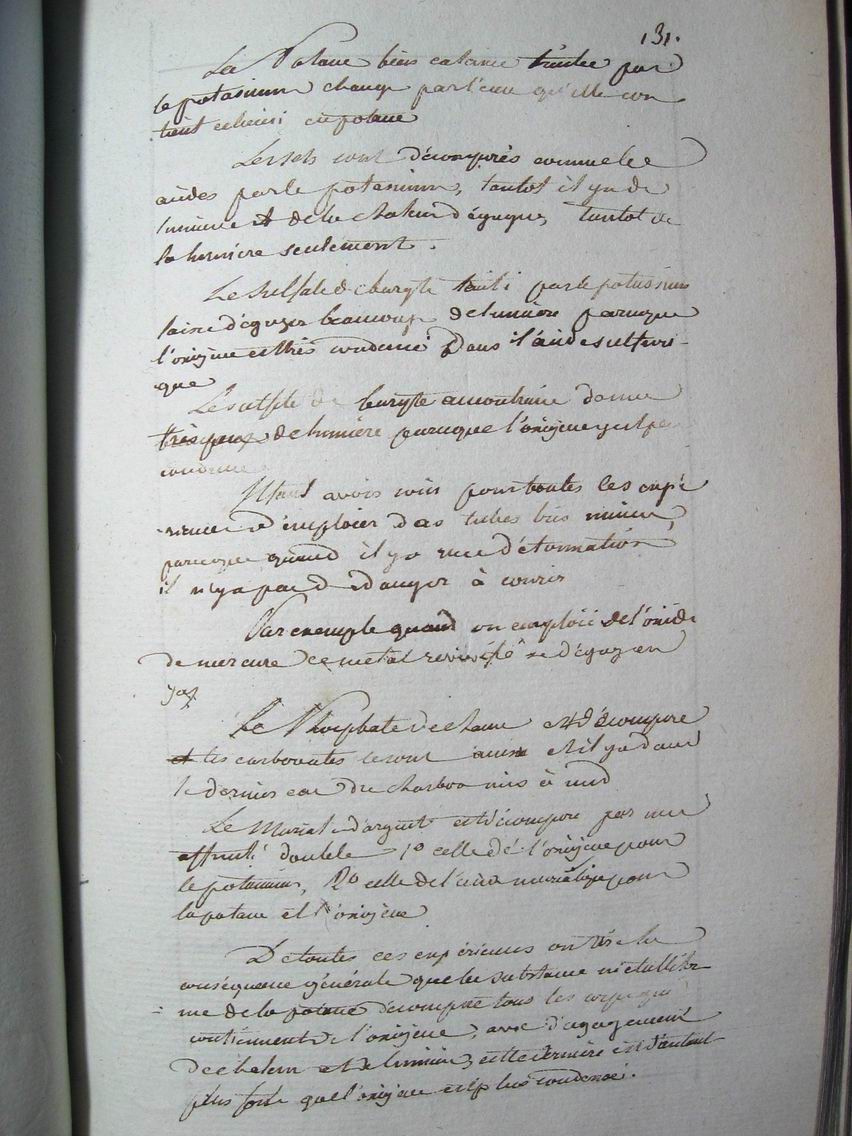 131.
La Potasse bien calcinée traitée par
le potassium change par l'eau qu'elle con
tient celui ci en potasse
Les sels sont décomposés comme les
acides par le potassium, tantot il y a de
lumiere et de la chaleur dégagées, tantot de
la lumiere seulement.
Le sulfate de baryte traité par le potassium
laisse dégager beaucoup de lumière parceque
l'oxigène est très condensé dans l'acide sulfuri-
que
Le sulfite de baryte au contraire donne
très peu de lumière parceque l'oxigene y est peu
condensé
Il faut avoir soin pour toutes les expé
riences d'emploier des tubes très minces,
parceque quand il y a une détonnation
il n'y a pas de danger à courir
Par exemple quand on emploie de l'oxide
de mercure ce metal revivifié se dégage en
gaz
Le Phosphate de chaux est décomposé
les carbonates le sont aussi et il y a dans
le dernier cas du charbon mis à nud
Le Muriate d'argent est décomposé par une
affinité double 1o celle de l'oxigene pour
le potassium, 2o celle de l'acide muriatique pour
la potasse et l'oxigene
De toutes ces expériences on tire la
conséquence générale que la substance métalli
me de la potasse décompose tous les corps qui
contiennent de l'oxigene, avec dégagement
de chaleur et de lumiere, cette derniere est d'autant
plus forte que l'oxigene est plus condensé.